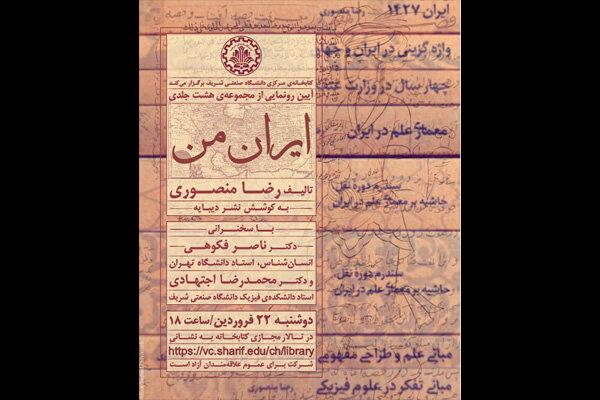 کتابخانه‌ی مرکزی دانشگاه صنعتی شریف برگزار می‌کند
آیین رونمایی از مجموعه‌ی هشت جلدی
ایران من
تالیف رضا منصوری
به کوشش نشر دیبایه
با سخنرانی
دکتر ناصر فکوهی
انسان‌شناس، استاد دانشگاه تهران
و دکتر محمدرضا اجتهادی
استاد دانشکده‌ی فیزیک دانشگاه صنعتی شریف
دوشنبه ۲۲ فروردین/ساعت ۱۸
در تالار مجازی کتابخانه به نشانی
https://vc.sharif.edu/ch/library
شرکت برای عموم علاقه‌مندان آزاد است
ایران ۱۴۲۷
رضا منصوری
واژه گزینی در ایران و
چهار سال در وزارت
معماری علم در ایران
سندرم دوره نقل
حاشیه بر معماری علم در ایران
سندرم دوره نقل
حاشیه بر معماری علم در ایران
مبانی علم و طراحی مفهومی
مبانی تفکر در علوم فیزیکی
رضا منصوری